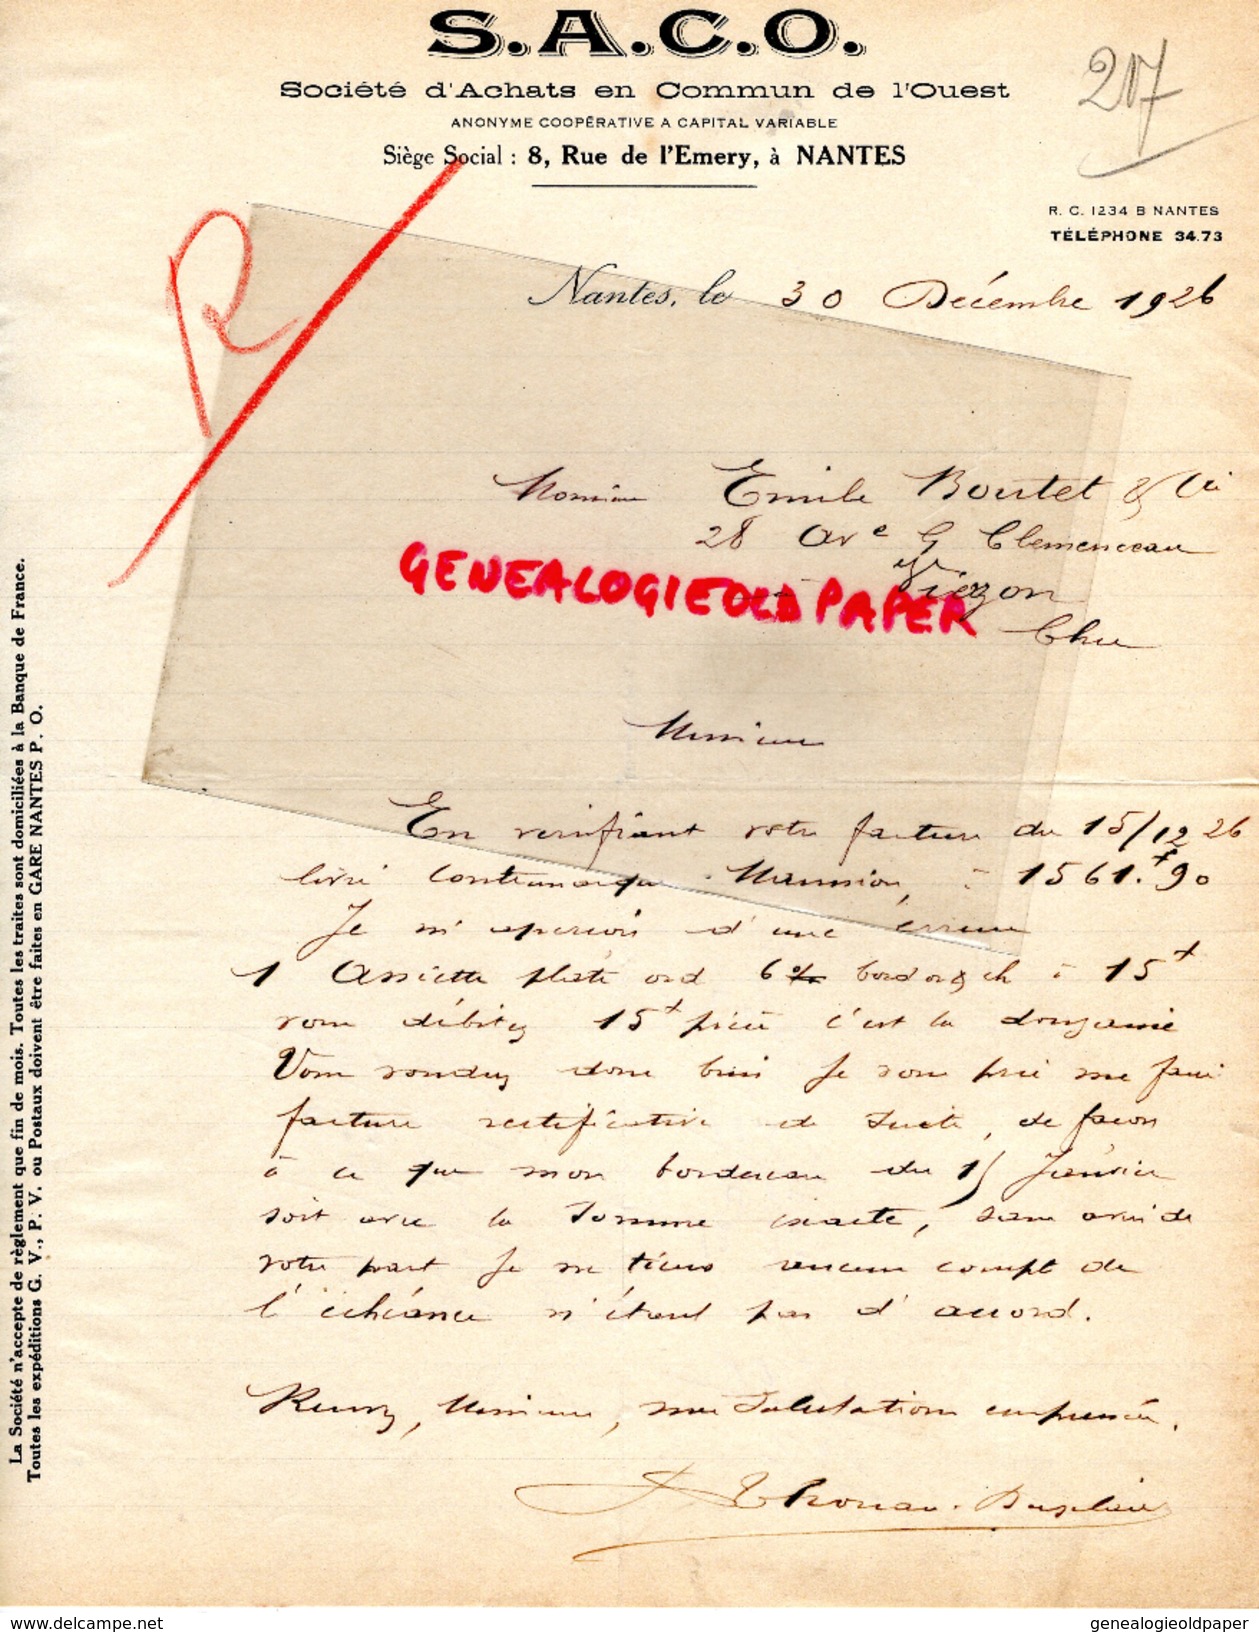 S.A.C.O.
Société d'Achats en Commun de l'Ouest
ANONYME COOPÉRATIVE A CAPITAL VARIABLE
Siège Social : 8, Rue de l'Emery, à NANTES
207
R. C. 1234 B NANTES
TÉLÉPHONE 34.73
R
Nantes, le 30 Décembre 1926
Monsieur Emile Boutet & Cie
28 Ave G Clemenceau
Vierzon
Cher
GENEALOGIEOLDPAPER
Monsieur
En vérifiant votre facture du 15/12 26
livré à 1561.f90
Je m'aperçois d'une erreur
1 Assiette plate ord à 15f
vous débitez 15f pièce c'est la douzaine
Vous voudrez donc bien Je vous prie me faire
facture rectificative de suite, de façon
à ce que mon bordereau du 15 Janvier
soit avec la somme exacte, sans avis de
votre part Je ne tiens aucun compte de
l'échéance n'étant pas d'accord.
Recevez, Monsieur, mes Salutations empressées.
La Société n'accepte de règlement que fin de mois. Toutes les traites sont domiciliées à la Banque de France.
Toutes les expéditions G. V., P. V. ou Postaux doivent être faites en GARE NANTES P. O.
www.delcampe.net
genealogieoldpaper